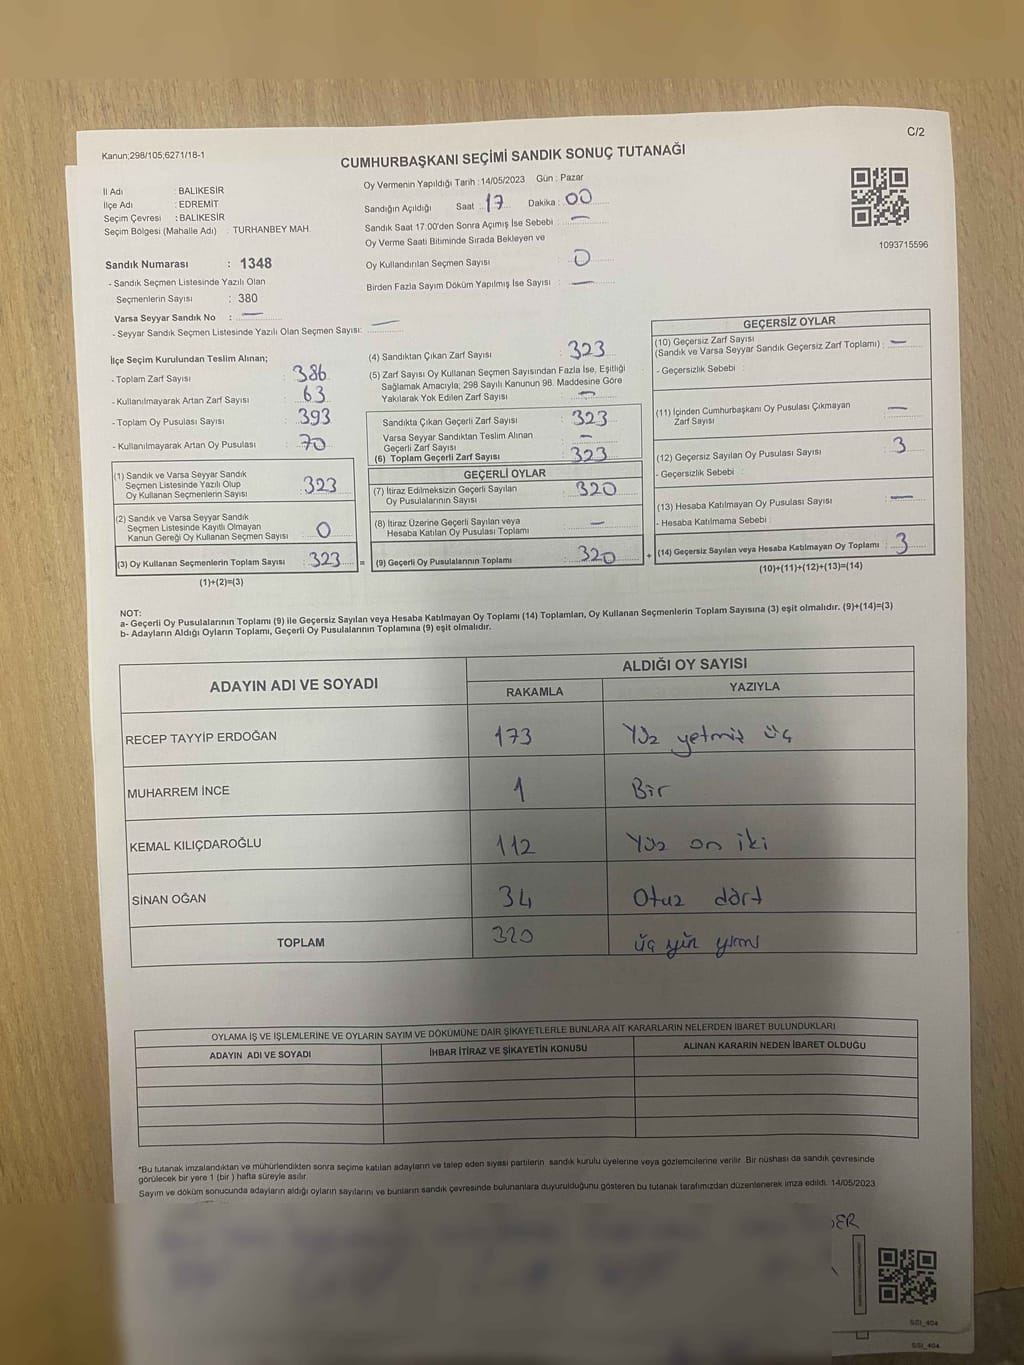 C/2
Kanun;298/105,6271/18-1
CUMHURBAŞKANI SEÇİMİ SANDIK SONUÇ TUTANAĞI
İl Adı : BALIKESİR
İlçe Adı : EDREMİT
Seçim Çevresi : BALIKESİR
Seçim Bölgesi (Mahalle Adı) : TURHANBEY MAH.
Oy Vermenin Yapıldığı Tarih : 14/05/2023 Gün : Pazar
Sandığın Açıldığı Saat : 17 Dakika : 00
Sandık Saat 17.00'den Sonra Açımış İse Sebebi : —
Oy Verme Saati Bitiminde Sırada Bekleyen ve
Oy Kullandırılan Seçmen Sayısı : 0
Birden Fazla Sayım Döküm Yapılmış İse Sayısı : —
1093715596
Sandık Numarası : 1348
- Sandık Seçmen Listesinde Yazılı Olan
Seçmenlerin Sayısı : 380
Varsa Seyyar Sandık No : —
- Seyyar Sandık Seçmen Listesinde Yazılı Olan Seçmen Sayısı: —
İlçe Seçim Kurulundan Teslim Alınan;
- Toplam Zarf Sayısı : 386
- Kullanılmayarak Artan Zarf Sayısı : 63
- Toplam Oy Pusulası Sayısı : 393
- Kullanılmayarak Artan Oy Pusulası : 70
(1) Sandık ve Varsa Seyyar Sandık
Seçmen Listesinde Yazılı Olup
Oy Kullanan Seçmenlerin Sayısı : 323
(2) Sandık ve Varsa Seyyar Sandık
Seçmen Listesinde Kayıtlı Olmayan
Kanun Gereği Oy Kullanan Seçmen Sayısı : 0
(3) Oy Kullanan Seçmenlerin Toplam Sayısı : 323 =
(1)+(2)=(3)
(4) Sandıktan Çıkan Zarf Sayısı : 323
(5) Zarf Sayısı Oy Kullanan Seçmen Sayısından Fazla İse, Eşitliği
Sağlamak Amacıyla; 298 Sayılı Kanunun 98. Maddesine Göre
Yakılarak Yok Edilen Zarf Sayısı : —
Sandıkta Çıkan Geçerli Zarf Sayısı : 323
Varsa Seyyar Sandıktan Teslim Alınan
Geçerli Zarf Sayısı : —
(6) Toplam Geçerli Zarf Sayısı : 323
GEÇERLİ OYLAR
(7) İtiraz Edilmeksizin Geçerli Sayılan
Oy Pusulalarının Sayısı : 320
(8) İtiraz Üzerine Geçerli Sayılan veya
Hesaba Katılan Oy Pusulası Toplamı : —
(9) Geçerli Oy Pusulalarının Toplamı : 320 +
GEÇERSİZ OYLAR
(10) Geçersiz Zarf Sayısı
(Sandık ve Varsa Seyyar Sandık Geçersiz Zarf Toplamı) : —
- Geçersizlik Sebebi :
(11) İçinden Cumhurbaşkanı Oy Pusulası Çıkmayan
Zarf Sayısı : —
(12) Geçersiz Sayılan Oy Pusulası Sayısı : 3
- Geçersizlik Sebebi :
(13) Hesaba Katılmayan Oy Pusulası Sayısı : —
- Hesaba Katılmama Sebebi :
(14) Geçersiz Sayılan veya Hesaba Katılmayan Oy Toplamı : 3
(10)+(11)+(12)+(13)=(14)
NOT:
a- Geçerli Oy Pusulalarının Toplamı (9) ile Geçersiz Sayılan veya Hesaba Katılmayan Oy Toplamı (14) Toplamları, Oy Kullanan Seçmenlerin Toplam Sayısına (3) eşit olmalıdır. (9)+(14)=(3)
b- Adayların Aldığı Oyların Toplamı, Geçerli Oy Pusulalarının Toplamına (9) eşit olmalıdır.
ADAYIN ADI VE SOYADI ALDIĞI OY SAYISI
RAKAMLA YAZIYLA
RECEP TAYYİP ERDOĞAN 173 Yüz yetmiş üç
MUHARREM İNCE 1 Bir
KEMAL KILIÇDAROĞLU 112 Yüz on iki
SİNAN OĞAN 34 Otuz dört
TOPLAM 320 üç yüz yirmi
OYLAMA İŞ VE İŞLEMLERİNE VE OYLARIN SAYIM VE DÖKÜMÜNE DAİR ŞİKAYETLERLE BUNLARA AİT KARARLARIN NELERDEN İBARET BULUNDUKLARI
ADAYIN ADI VE SOYADI İHBAR İTİRAZ VE ŞİKAYETİN KONUSU ALINAN KARARIN NEDEN İBARET OLDUĞU
*Bu tutanak imzalandıktan ve mühürlendikten sonra seçime katılan adayların ve talep eden siyasi partilerin sandık kurulu üyelerine veya gözlemcilerine verilir. Bir nüshası da sandık çevresinde
görülecek bir yere 1 (bir ) hafta süreyle asılır.
Sayım ve döküm sonucunda adayların aldığı oyların sayılarını ve bunların sandık çevresinde bulunanlara duyurulduğunu gösteren bu tutanak tarafımızdan düzenlenerek imza edildi. 14/05/2023
DER
SSI_404
SSI_404